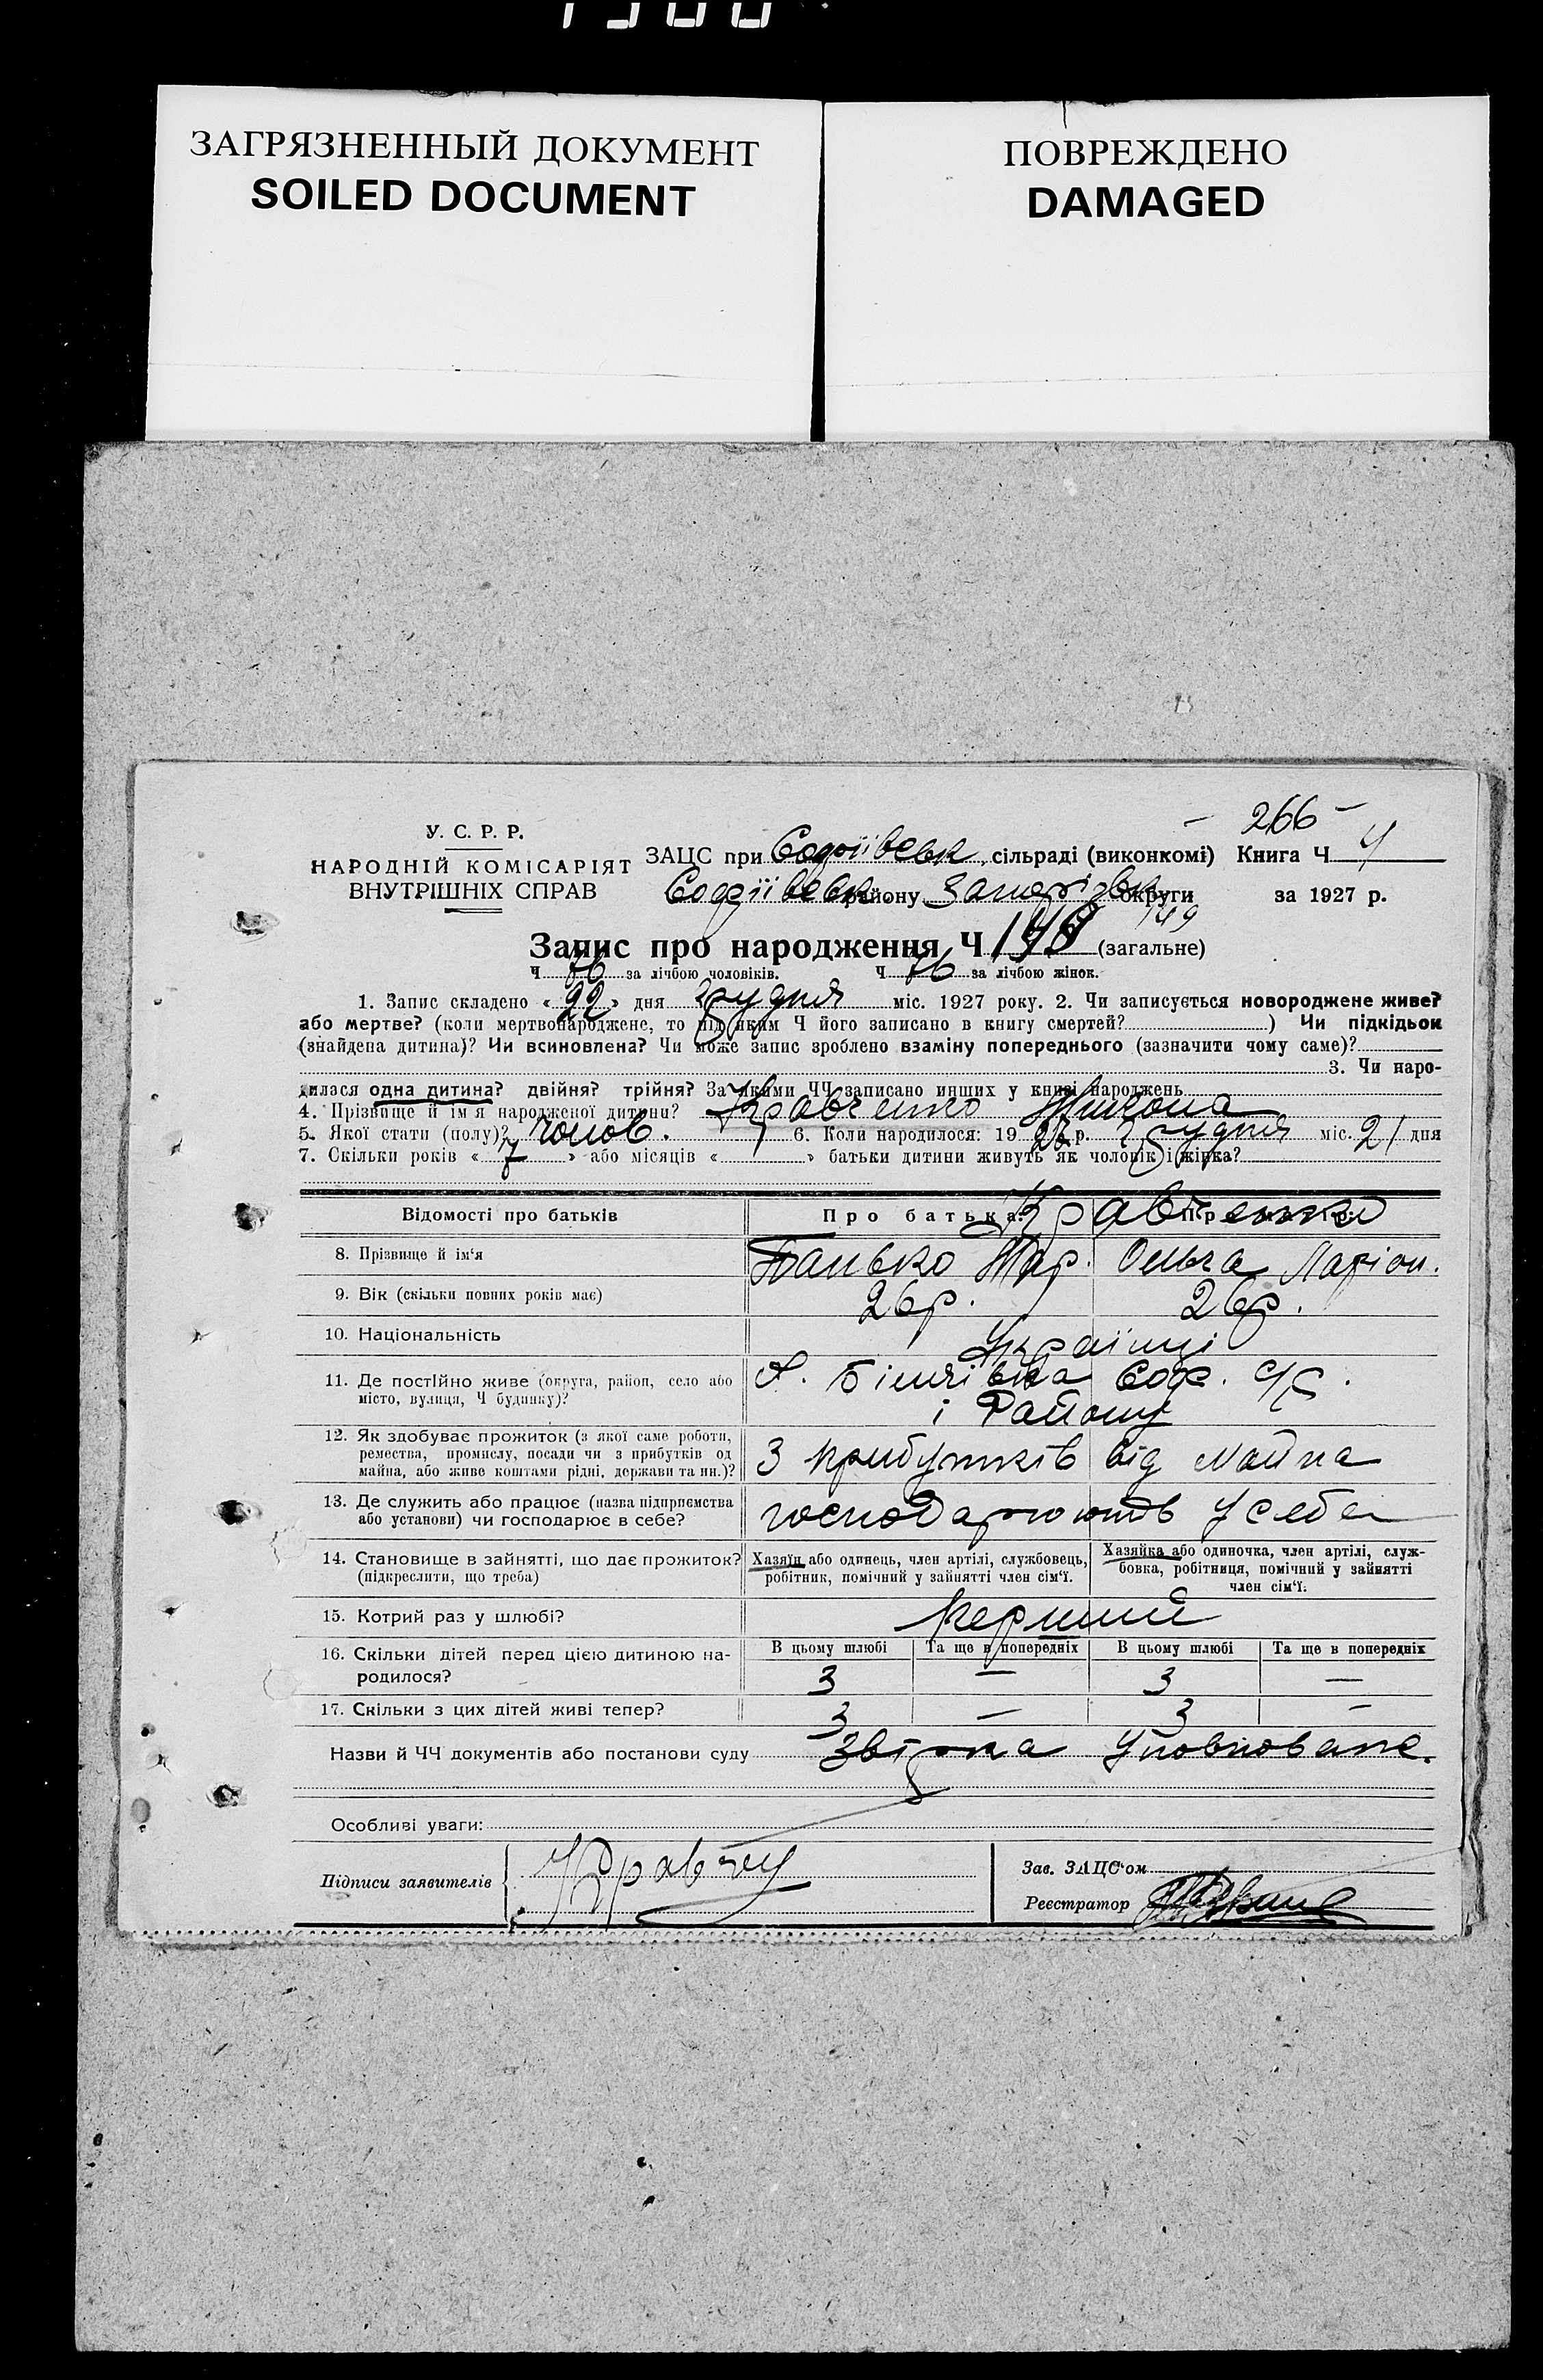 ЗАГРЯЗНЕННЫЙ ДОКУМЕНТ
SOILED DOCUMENT
ПОВРЕЖДЕНО
DAMAGED
266
У. С. Р. Р.
НАРОДНІЙ КОМІСАРІЯТ
ВНУТРІШНІХ СПРАВ
ЗАЦС при Софіївськ. сільраді (виконкомі) Книга Ч 4
Софіївськ. району Запорізьк. округи за 1927 р.
149
Запис про народження Ч (загальне)
Ч 76 за лічбою чоловіків. Ч 76 за лічбою жінок.
1. Запис складено «22» дня Грудня міс. 1927 року. 2. Чи записується новороджене живе?
або мертве? (коли мертвонароджене, то під яким Ч його записано в книгу смертей? ) Чи підкідьок
(знайдена дитина)? Чи всиновлена? Чи може запис зроблено взаміну попереднього (зазначити чому саме)?
3. Чи наро-
дилася одна дитина? двійня? трійня? За якими ЧЧ записано инших у книзі народжень
4. Прізвище й ім'я народженої дитини? Кравченко Микола
5. Якої статі (полу)? чолов. 6. Коли народилося: 1927 р. Грудня міс. 21 дня
7. Скільки років «7» або місяців « » батьки дитини живуть як чоловік і жінка?
Відомості про батьків
Про батька: Кравченко
8. Прізвище й ім'я
Ольга Ларіон.
9. Вік (скільки повних років має)
26 р. 26 р.
10. Національність
Українці
11. Де постійно живе (округа, район, село або
місто, вулиця, Ч будинку)?
Соф. С/Р.
і Району
12. Як здобуває прожиток (з якої саме роботи,
ремества, промислу, посади чи з прибутків од
майна, або живе коштами рідні, держави та ин.)?
З прибутків від майна
13. Де служить або працює (назва підприємства
або установи) чи господарює в себе?
господарюють у себе
14. Становище в зайнятті, що дає прожиток?
(підкреслити, що треба)
Хазяїн або одинець, член артілі, службовець,
робітник, помічний у зайнятті член сім'ї.
Хазяйка або одиночка, член артілі, служ-
бовка, робітниця, помічний у зайнятті
член сім'ї.
15. Котрий раз у шлюбі?
перший
16. Скільки дітей перед цією дитиною на-
родилося?
В цьому шлюбі Та ще в попередніх В цьому шлюбі Та ще в попередніх
3 — 3 —
17. Скільки з цих дітей живі тепер?
3 — 3 —
Назви й ЧЧ документів або постанови суду
Особливі уваги:
Підписи заявителів
Зав. ЗАЦС'ом
Реєстратор